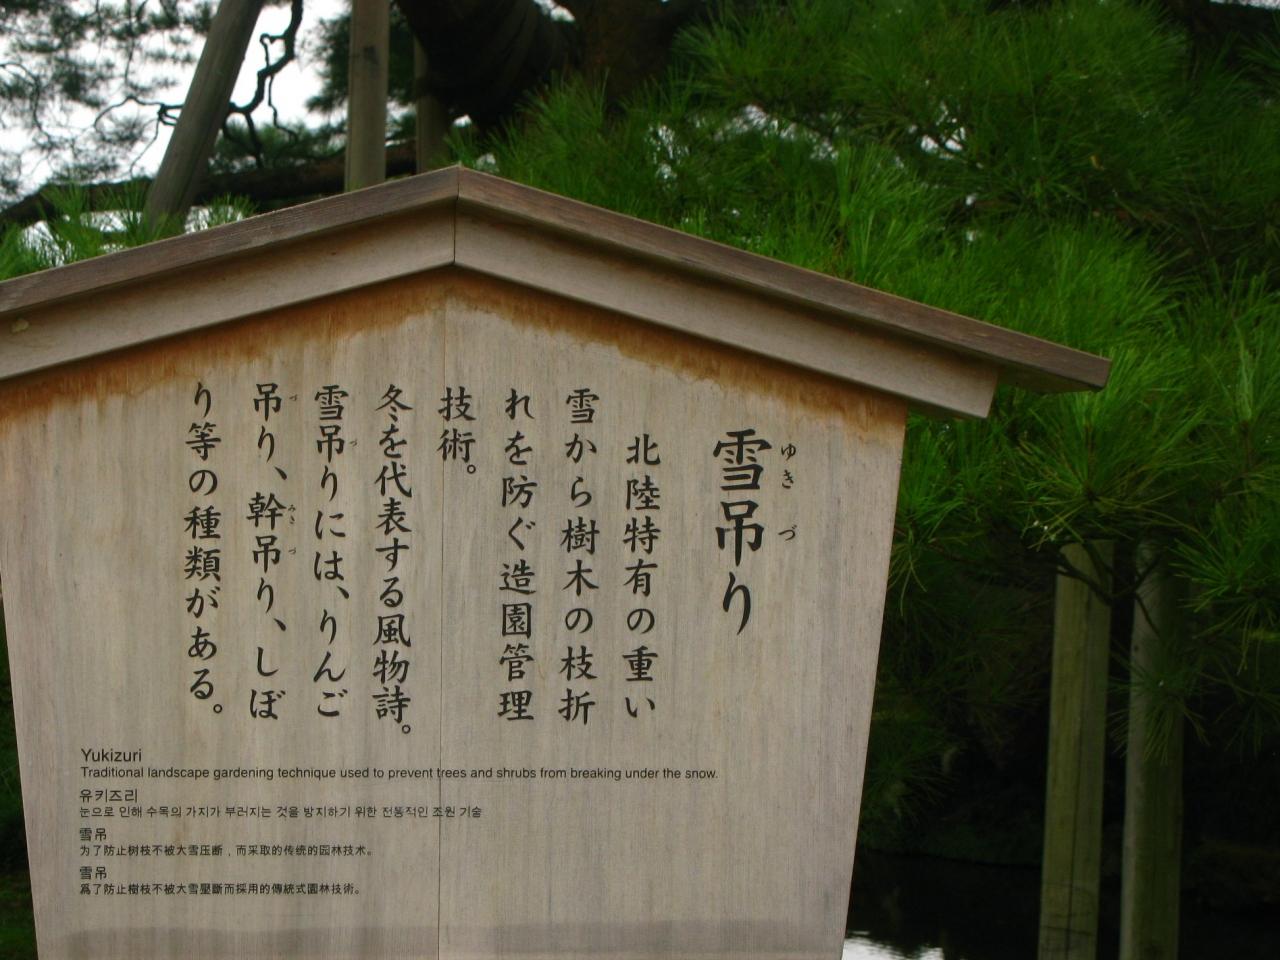 雪吊り
ゆきづ
北陸特有の重い
雪から樹木の枝折
れを防ぐ造園管理
技術。
冬を代表する風物詩。
雪吊りには、りんご
づ
吊り、幹吊り、しぼ
づ みき づ
り等の種類がある。
Yukizuri
Traditional landscape gardening technique used to prevent trees and shrubs from breaking under the snow.
유키즈리
눈으로 인해 수목의 가지가 부러지는 것을 방지하기 위한 전통적인 조원 기술
雪吊
为了防止树枝不被大雪压断，而采取的传统的园林技术。
雪吊
爲了防止樹枝不被大雪壓斷而採用的傳統式園林技術。